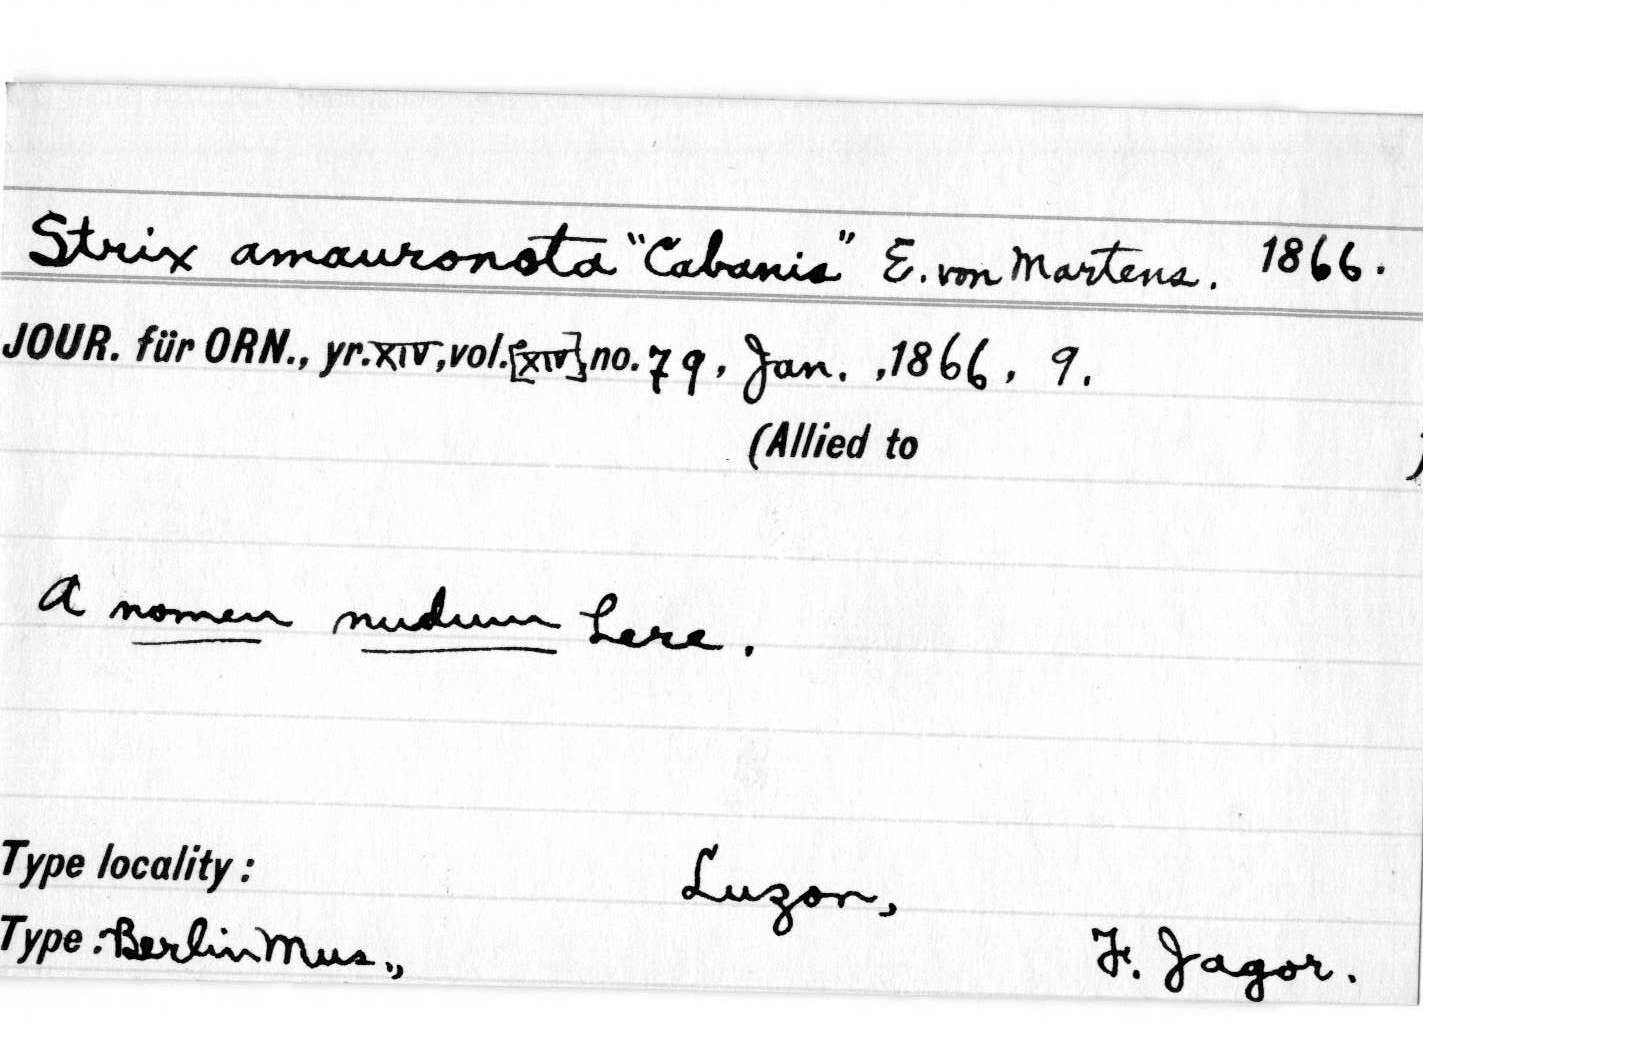 Strix amauronota "Cabanis" E. von Martens. 1866.
JOUR. für ORN., yr. XIV, vol. [XIV], no. 79, Jan. , 1866, 9.
(Allied to )
A nomen nudum here.
Type locality: Luzon,
Type: Berlin Mus., F. Jagor.